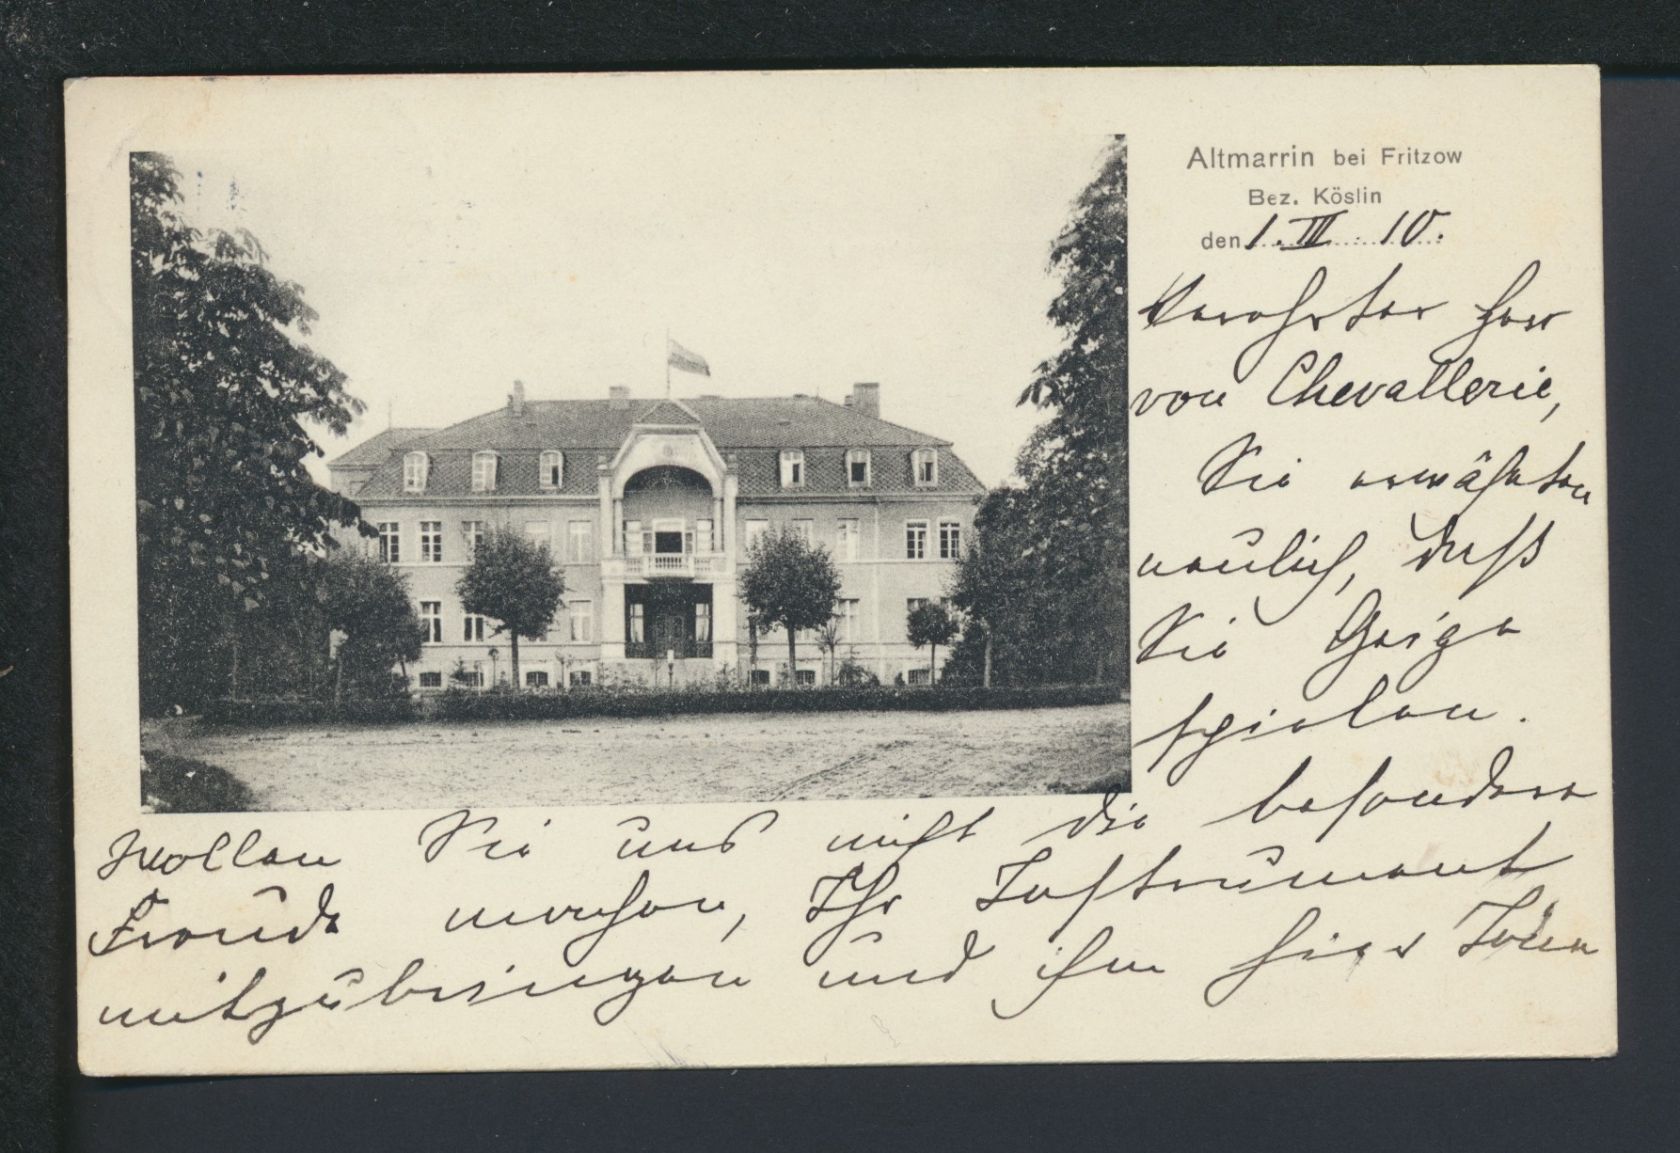 Altmarrin bei Fritzow
Bez. Köslin
den 1. III. 10.
Verehrter Herr
von Chevallerie,
Sie erwähnten
neulich, daß
Sie Geige
spielen.
Wollen Sie uns nicht die besondere
Freude machen, Ihr Instrument
mitzubringen und ihm hier Töne